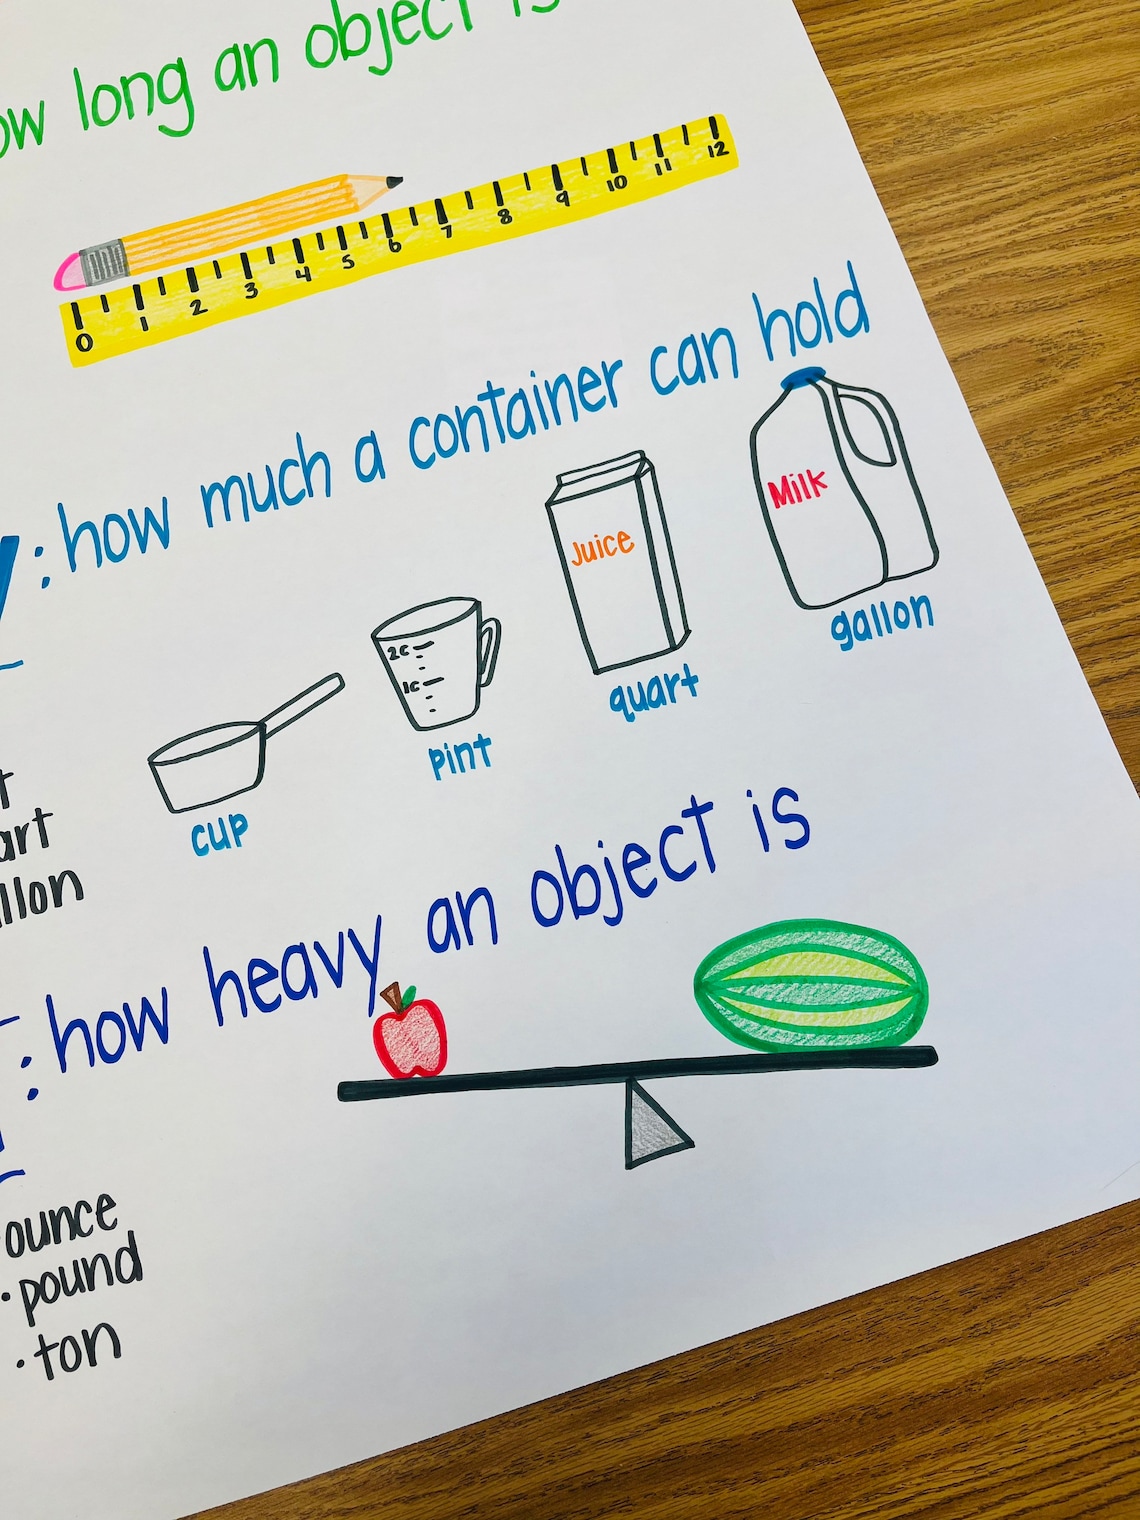 how long an object is
0 1 2 3 4 5 6 7 8 9 10 11 12
: how much a container can hold
Milk
Juice
gallon
2c
1c
quart
pint
cup
: how heavy an object is
ounce
· pound
· ton